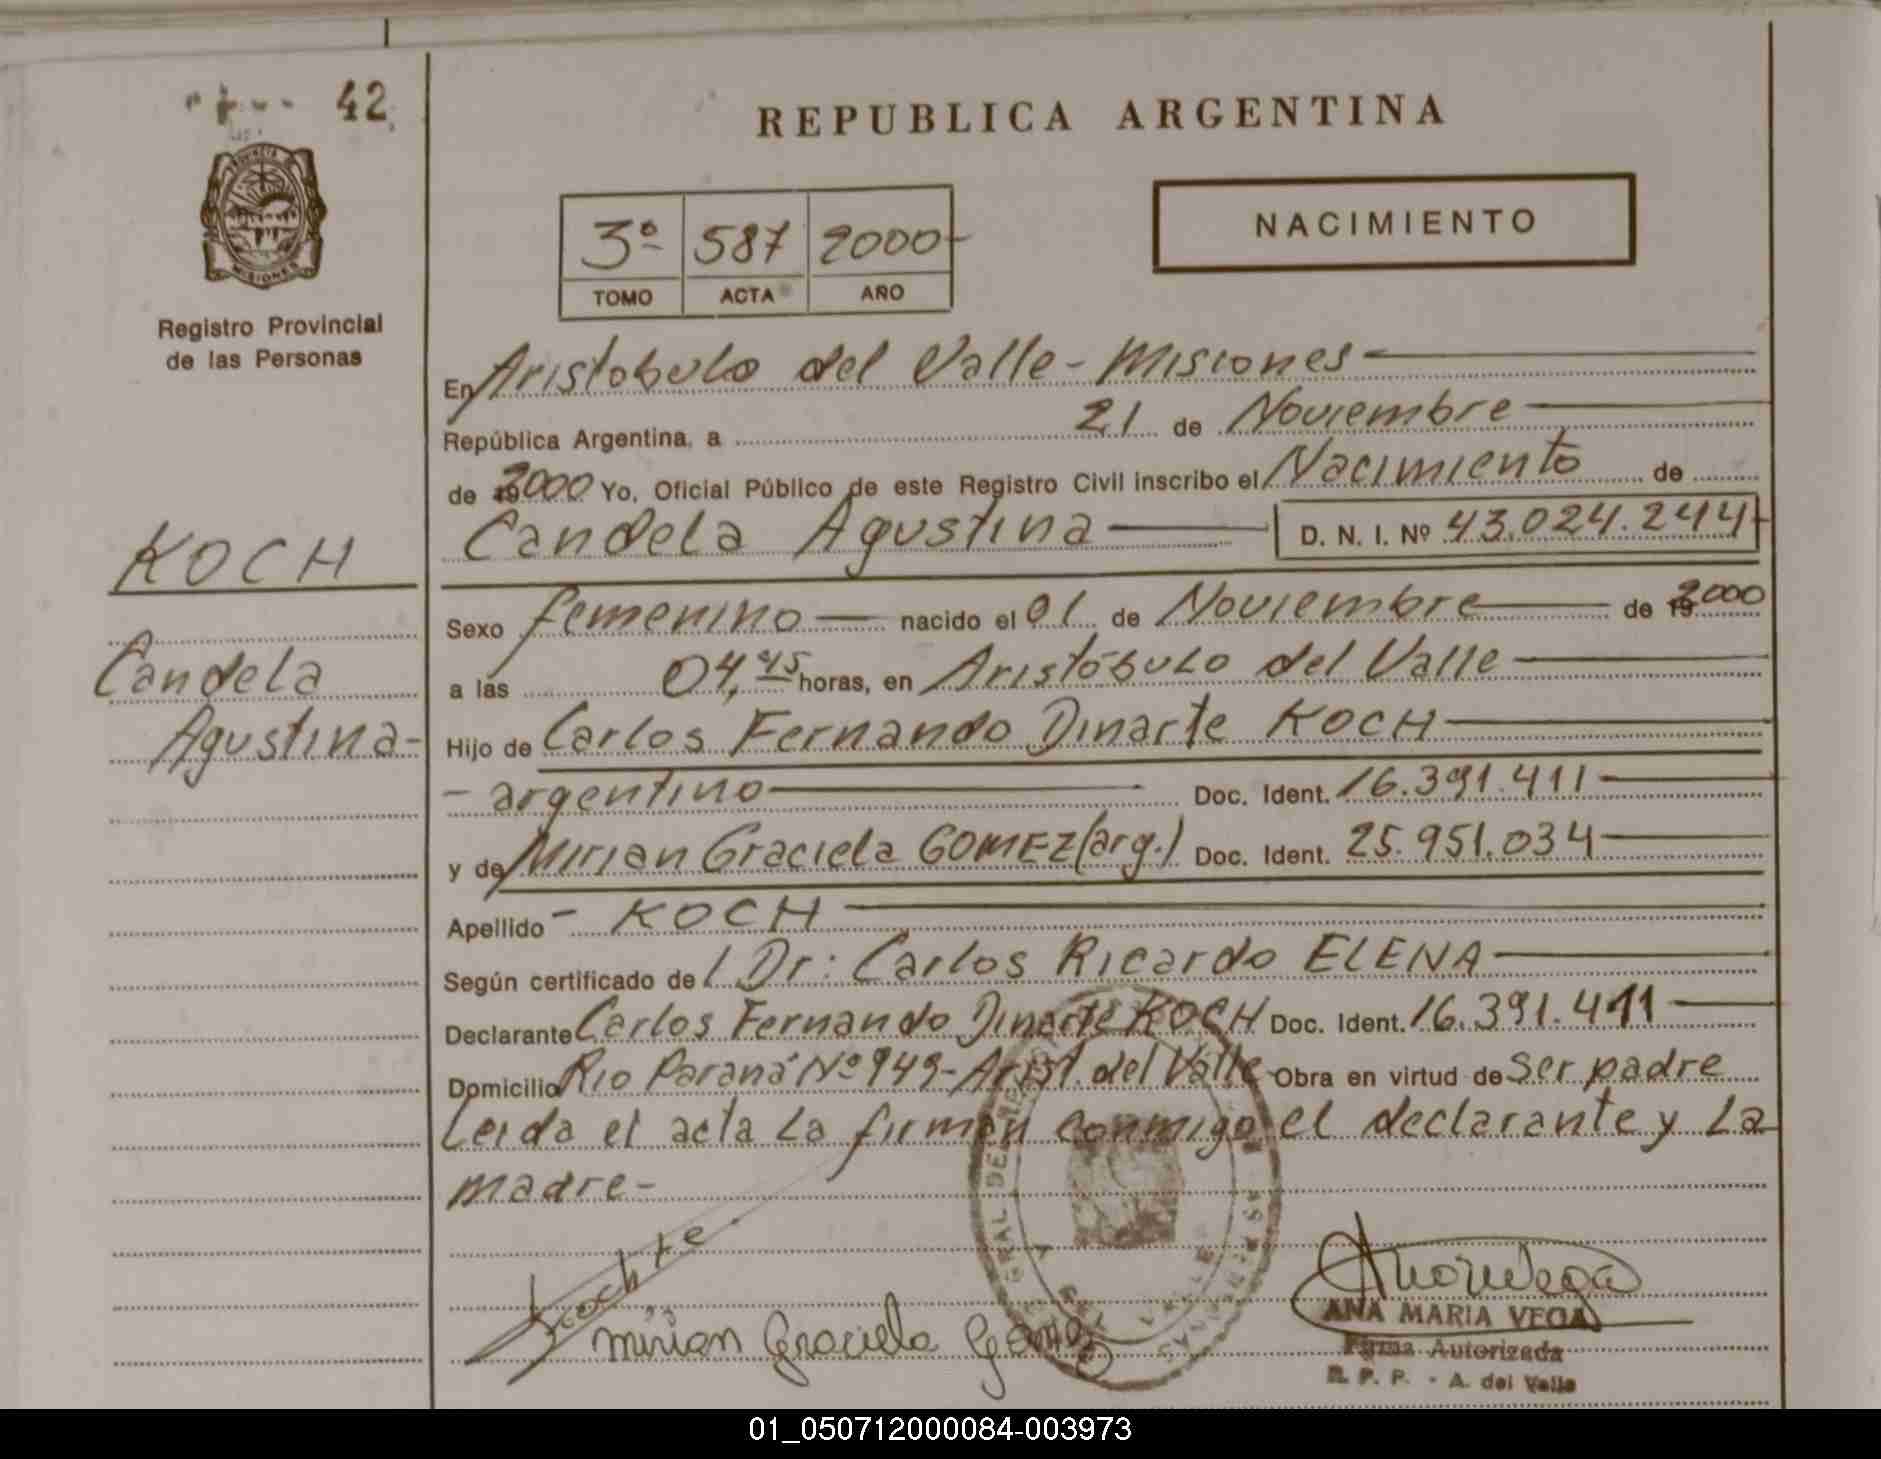 42
REPUBLICA ARGENTINA
PROVINCIA DE
MISIONES
3º 587 2000-
TOMO ACTA AÑO
NACIMIENTO
Registro Provincial
de las Personas
En Aristobulo del Valle - Misiones
República Argentina, a 21 de Noviembre
de 2000 Yo, Oficial Público de este Registro Civil inscribo el Nacimiento de
Candela Agustina D. N. I. Nº 43.024.244
KOCH
Sexo femenino nacido el 01 de Noviembre de 2000
Candela
a las 04,45 horas, en Aristóbulo del Valle
Agustina-
Hijo de Carlos Fernando Dinarte KOCH
- argentino Doc. Ident. 16.391.411
y de Mirian Graciela GOMEZ (arg.) Doc. Ident. 25.951.034
Apellido - KOCH
Según certificado de Dr: Carlos Ricardo ELENA
Declarante Carlos Fernando Dinarte KOCH Doc. Ident. 16.391.411
Domicilio Rio Paraná Nº 949- Arist. del Valle Obra en virtud de ser padre
Leida el acta la firman conmigo el declarante y la
madre-
mirian Graciela Gomez
ANA MARIA VEGA
Firma Autorizada
R. P. P. - A. del Valle
01_050712000084-003973